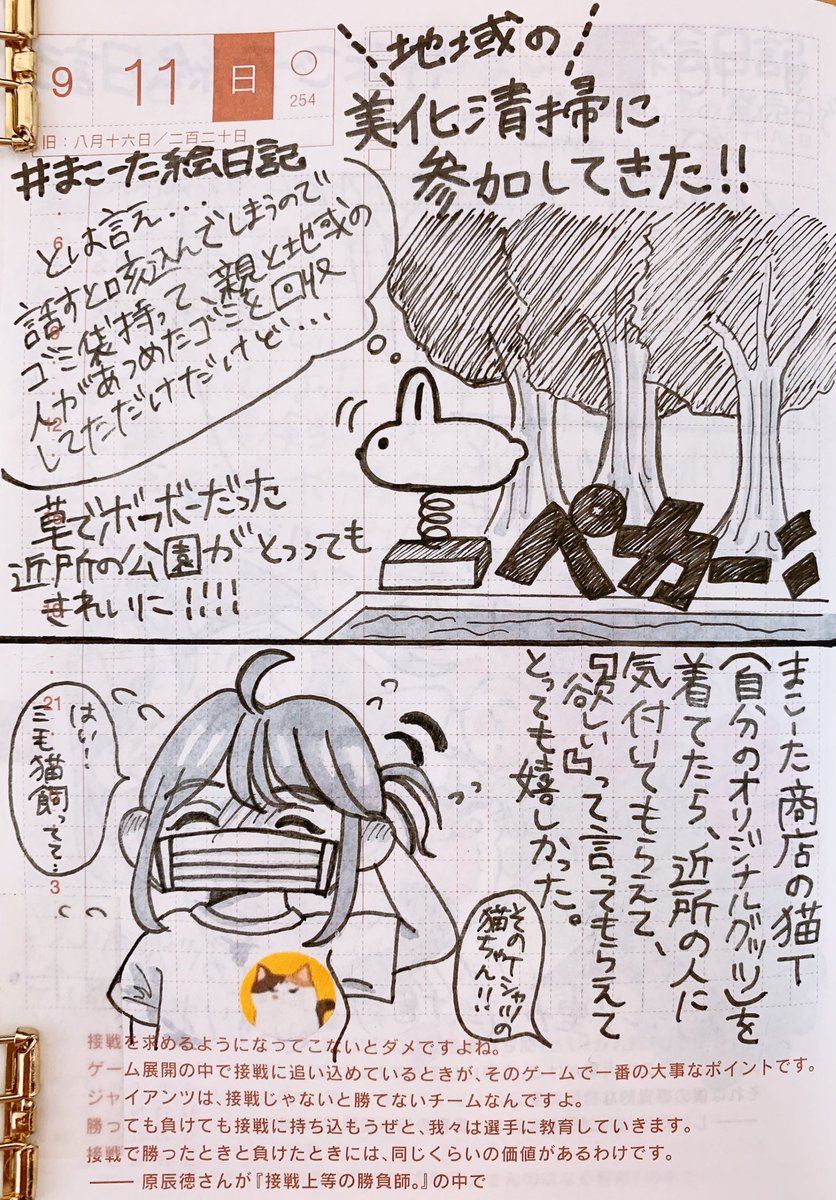 9 11 日
254
旧：八月十六日／二百二十日
#まこーた絵日記
地域の
美化清掃に
参加してきた!!
とは言え...
話すと咳込んでしまうので
ゴミ袋持って、親と地域の
人があつめたゴミを回収
してただけだけど...
6
12
草でボーボーだった
近所の公園がとっっても
きれいに!!!!
ペカーン
まこーた商店の猫T
(自分のオリジナルグッツ)を
着てたら、近所の人に
気付いてもらえて、
『欲しい』って言ってもらえて
とっても嬉しかった。
21
はい!
三毛猫飼ってて...
3
そのTシャツの
猫ちゃん!!
接戦を求めるようになってこないとダメですよね。
ゲーム展開の中で接戦に追い込めているときが、そのゲームで一番の大事なポイントです。
ジャイアンツは、接戦じゃないと勝てないチームなんですよ。
勝っても負けても接戦に持ち込もうぜと、我々は選手に教育していきます。
接戦で勝ったときと負けたときには、同じくらいの価値があるわけです。
―― 原辰徳さんが『接戦上等の勝負師。』の中で